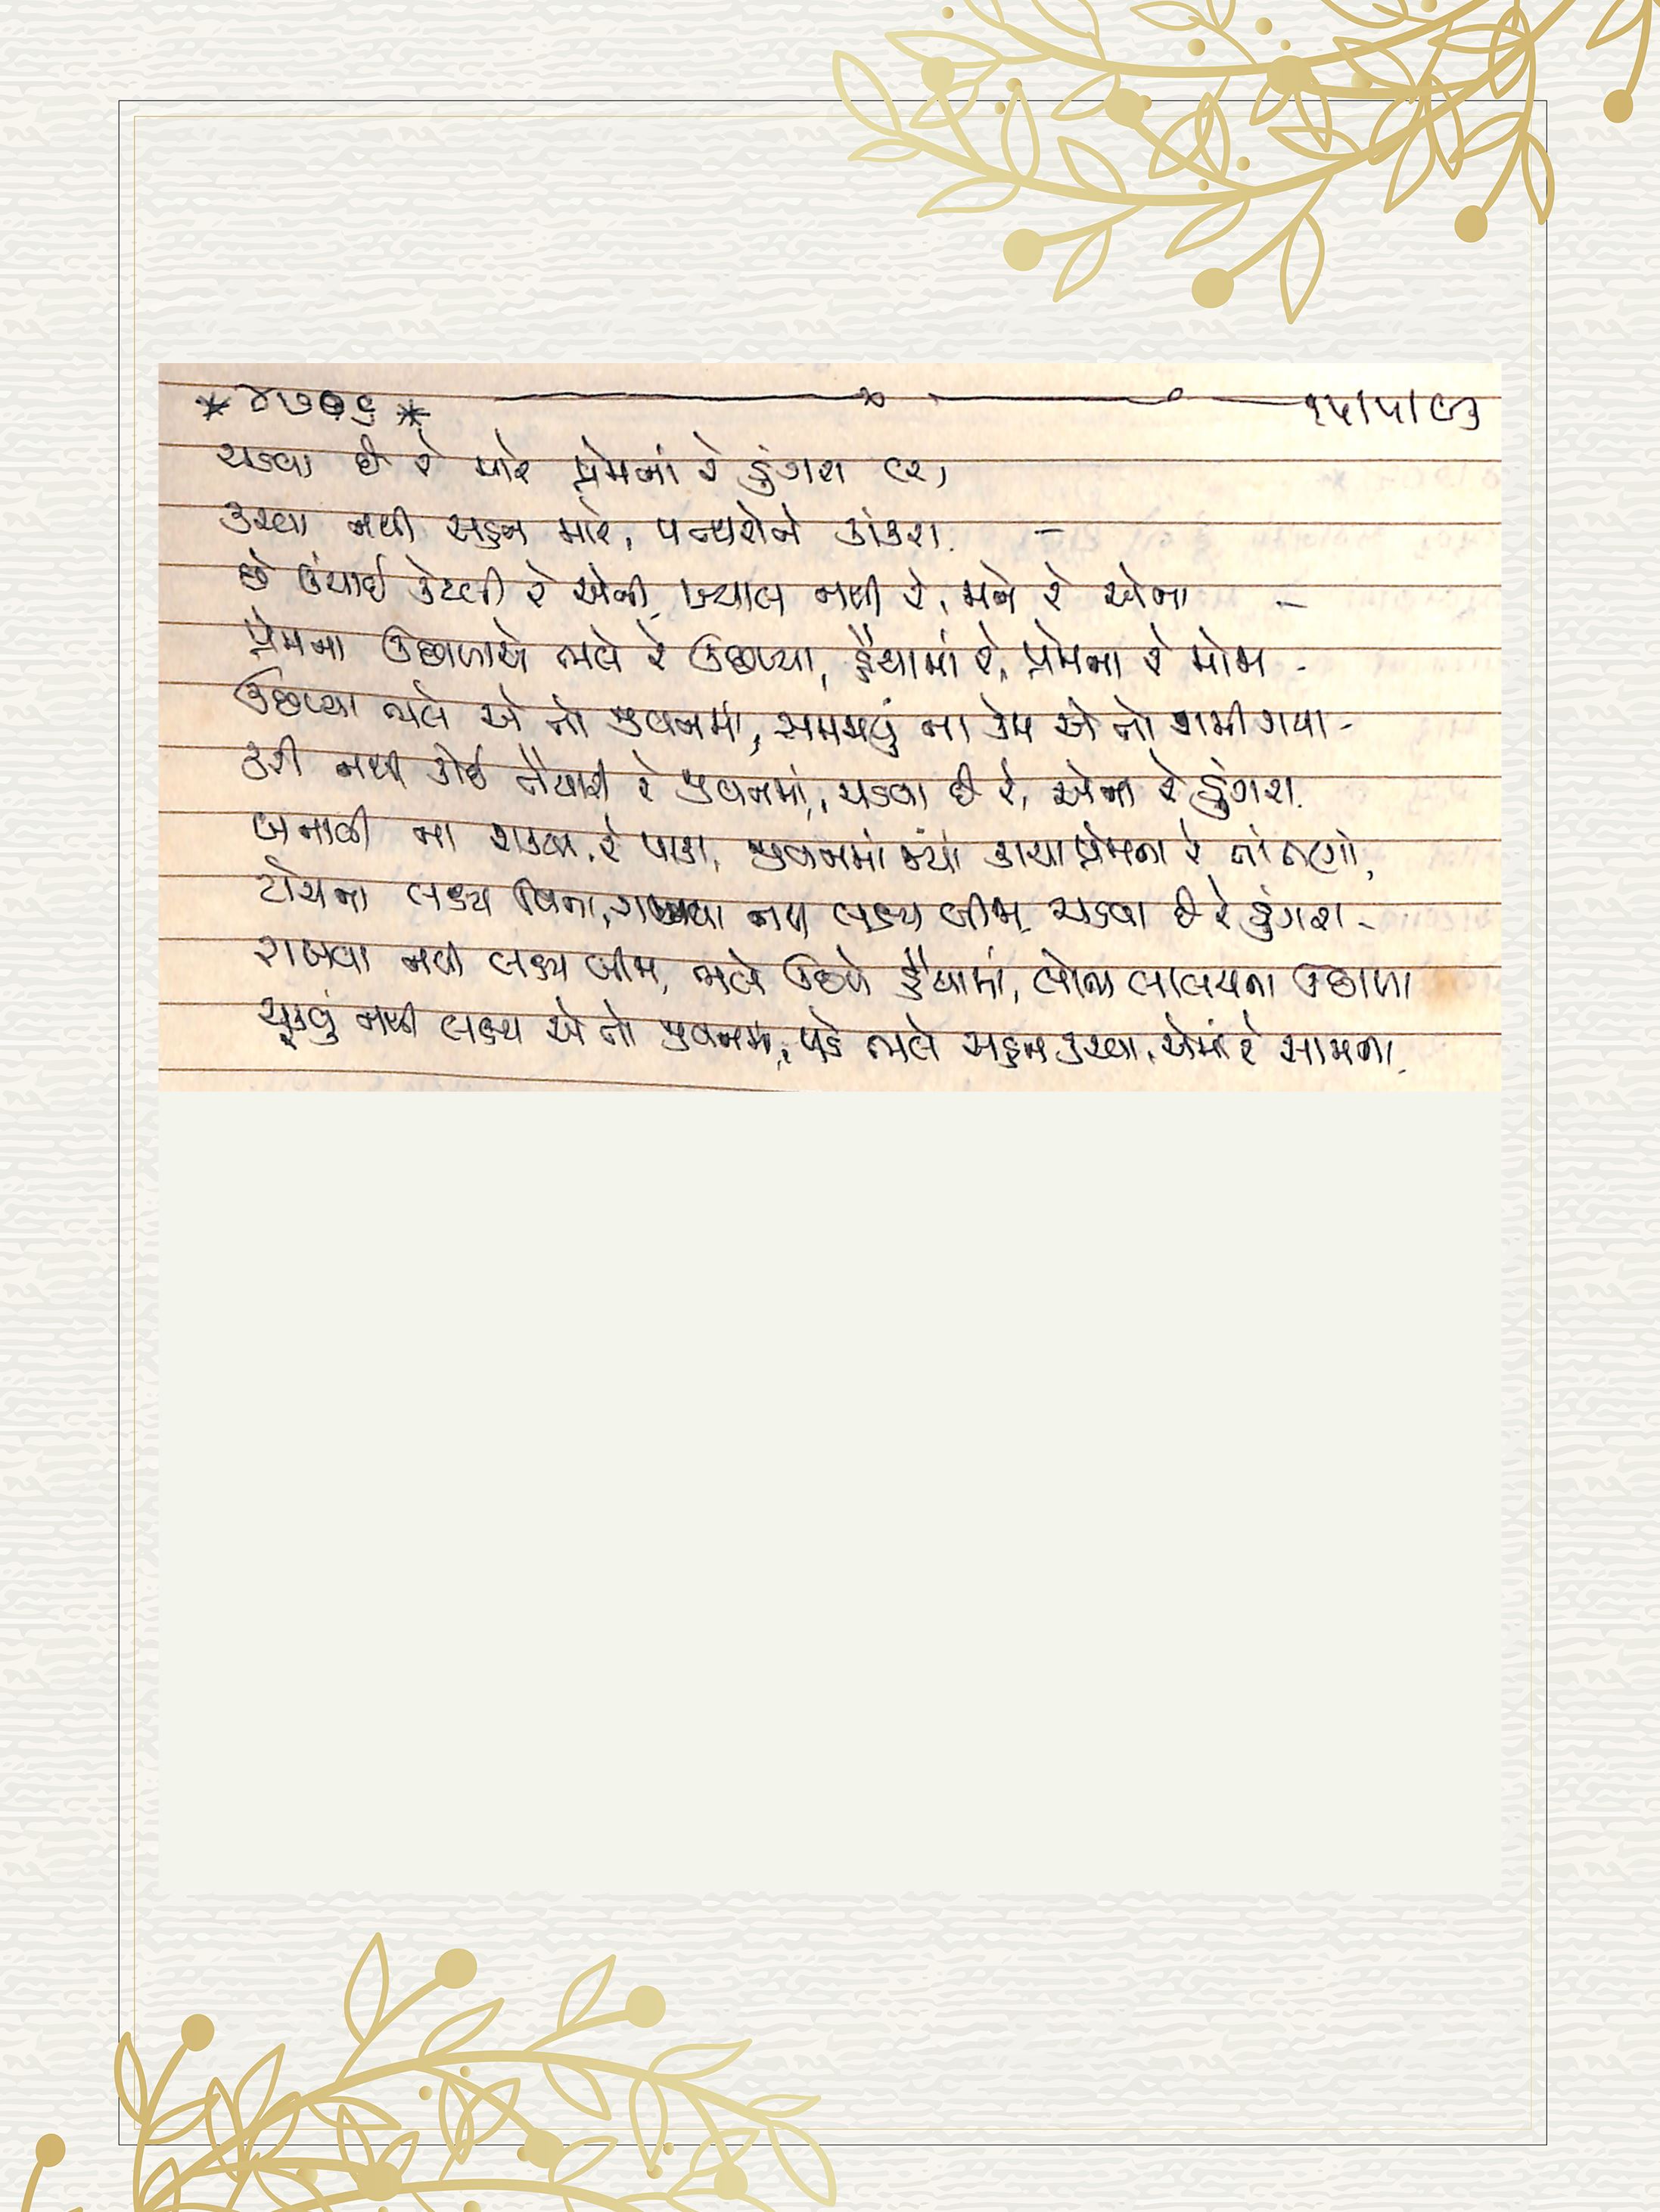 * ૪૭૦૬ * ૧૫/૫/૯૩
ચડવા છે રે મારે પ્રેમનાં રે ડુંગરા
કરવા નથી સહન મારે, પથ્થરોને કાંકરા. -
છે ઉંચાઈ કેટલી રે એની, ખ્યાલ નથી રે, મને રે એના -
પ્રેમના ઉછાળાએ ભલે રે ઉછળ્યા, હૈયામાં રે, પ્રેમના રે મોજા -
ઉછળ્યા ભલે એ તો જીવનમાં, સમજાયું ના કેમ એ તો શમી ગયા -
કરી નથી કોઈ તૈયારી રે જીવનમાં, ચડવા છે રે, એના રે ડુંગરા.
બનાવી ના શક્યા રે પાકા, જીવનમાં જ્યાં કાચા પ્રેમના રે તાંતણા,
ટોચના લક્ષ્ય વિના, રાખવા નથી લક્ષ્ય બીજા, ચડવા છે રે ડુંગરા -
રાખવા નથી લક્ષ્ય બીજા, ભલે ઉછળે હૈયામાં, લોભ લાલચના ઉછાળા
ચૂકવું નથી લક્ષ્ય એ તો જીવનમાં, પડે ભલે સહન કરવા, એમાં રે સામના.